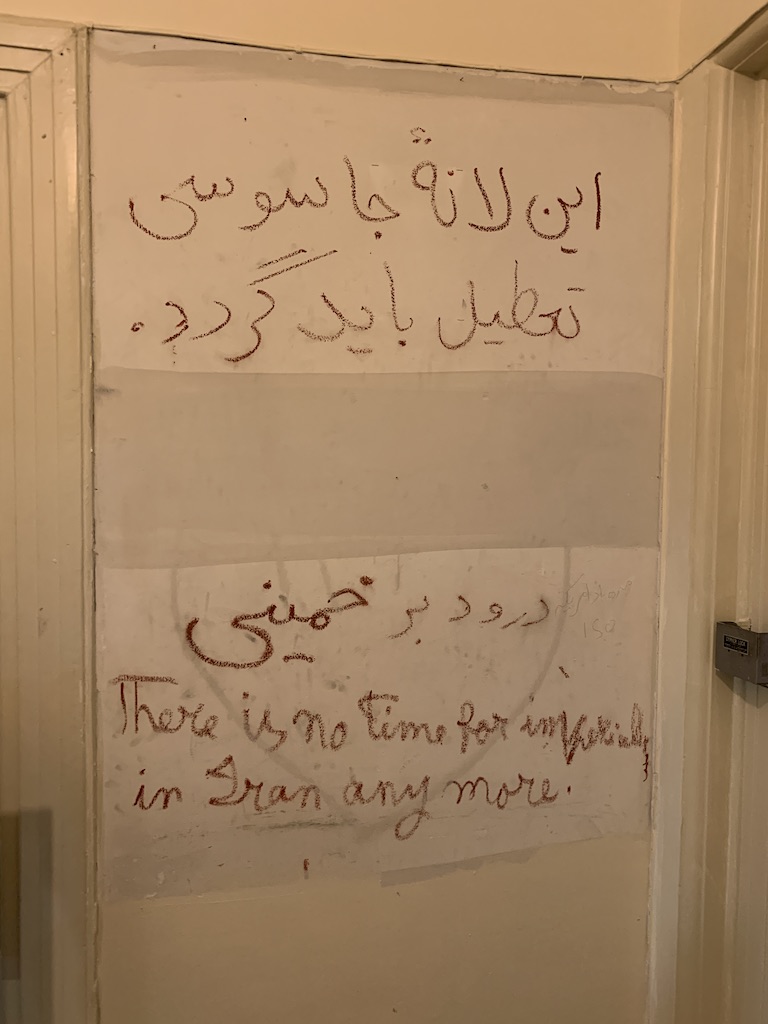 این لانهٔ جاسوسی
تعطیل باید گردد.
درود بر خمینی
There is no time for
in Iran any more.